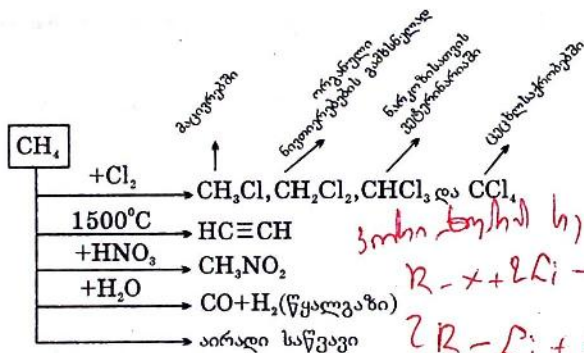 მაცივრებში
ორგანული
ნივთიერებების გამხსნელად
ნარკოზისათვის
ვეტერინარიაში
ცეცხლსაქრობებში
CH₄
+Cl₂ CH₃Cl, CH₂Cl₂, CHCl₃ და CCl₄
1500°C HC≡CH
+HNO₃ CH₃NO₂
R-x+2Li-
+H₂O CO+H₂(წყალგაზი)
აირადი საწვავი
2R-Li+